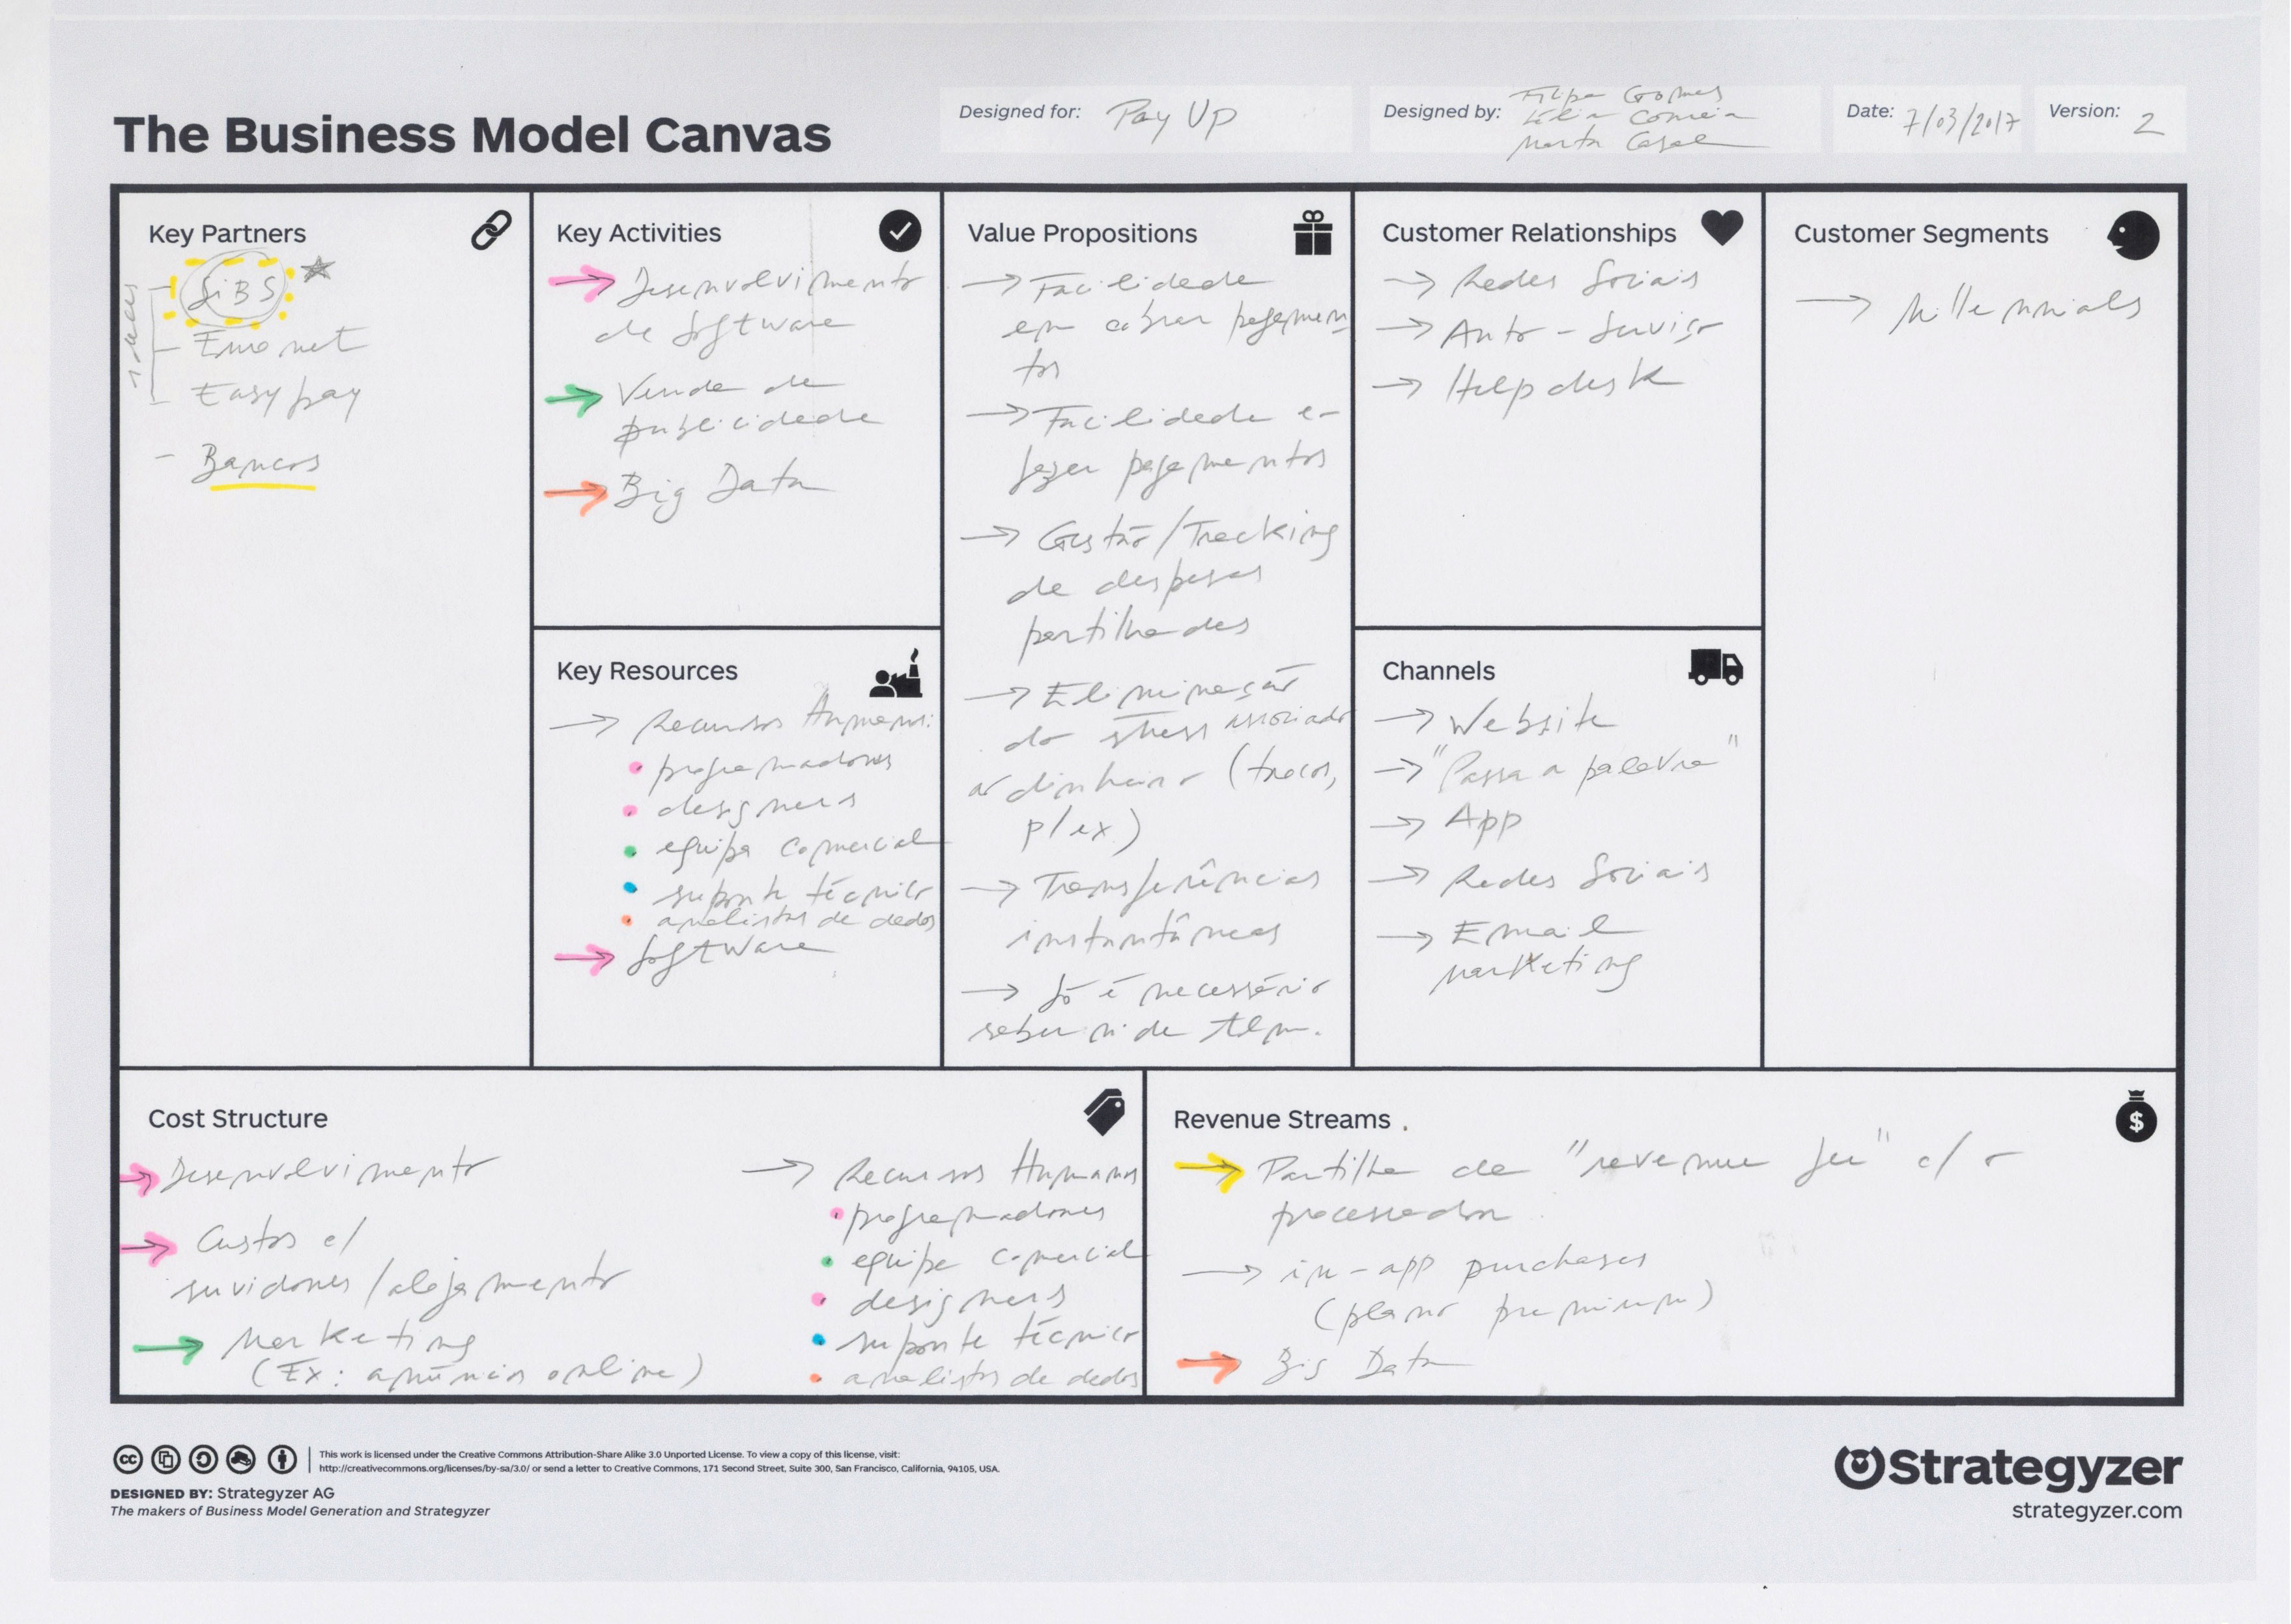 The Business Model Canvas
Designed for: Pay Up
Designed by: Filipe Gomes
Célia Correia
Marta Casal
Date: 7/03/2017
Version: 2
Key Partners
SiBS
Euronet
Easypay
- Bancos
Key Activities
→ Desenvolvimento
de Software
→ Venda de
publicidade
→ Big Data
Key Resources
→ Recursos Humanos:
• programadores
• designers
• equipa comercial
• suporte técnico
• analistas de dados
→ Software
Value Propositions
→ Facilidade
em cobrar pagamen-
tos
→ Facilidade e-
fazer pagamentos
→ Gestão/Tracking
de despesas
partilhadas
→ Eliminação
do stress associado
ao dinheiro (trocos,
p/ex)
→ Transferências
instantâneas
→ Só é necessário
saber n. de tlm.
Customer Relationships
→ Redes Sociais
→ Auto-Serviço
→ Helpdesk
Channels
→ Website
→ "Passa a palavra"
→ App
→ Redes Sociais
→ Email
Marketing
Customer Segments
→ Millennials
Cost Structure
→ Desenvolvimento
→ Custos c/
servidores/alojamento
→ Marketing
(Ex: anúncios online)
→ Recursos Humanos
• programadores
• equipa comercial
• designers
• suporte técnico
• analistas de dados
Revenue Streams
→ Partilha de "revenue fee" c/ o
processador
→ in-app purchases
(plano premium)
→ Big Data
This work is licensed under the Creative Commons Attribution-Share Alike 3.0 Unported License. To view a copy of this license, visit:
http://creativecommons.org/licenses/by-sa/3.0/ or send a letter to Creative Commons, 171 Second Street, Suite 300, San Francisco, California, 94105, USA.
DESIGNED BY: Strategyzer AG
The makers of Business Model Generation and Strategyzer
Strategyzer
strategyzer.com